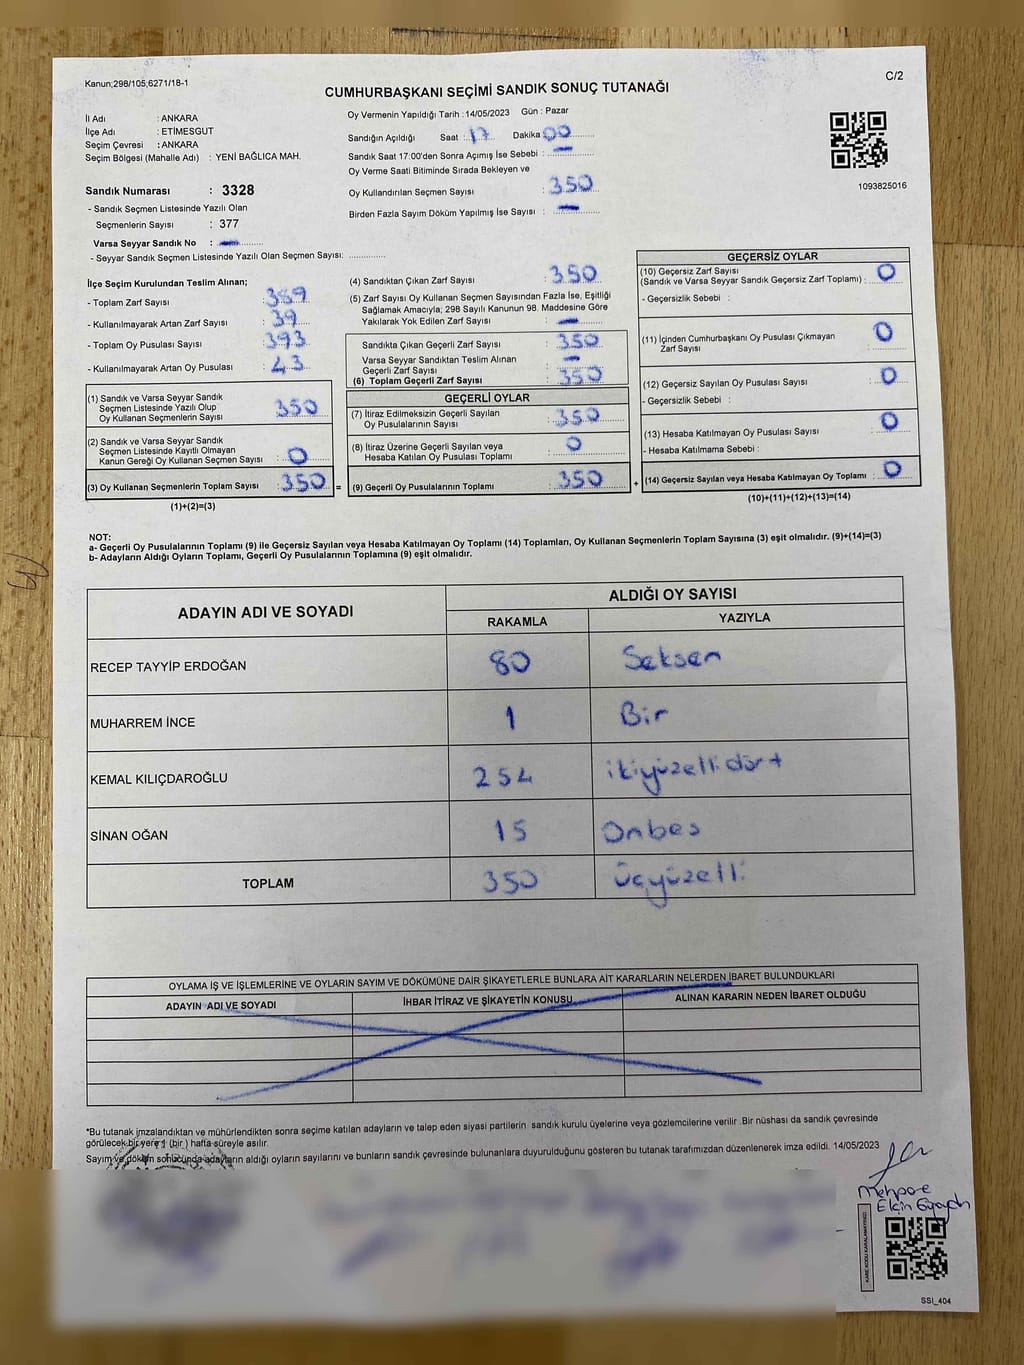 Kanun;298/105;6271/18-1
C/2
CUMHURBAŞKANI SEÇİMİ SANDIK SONUÇ TUTANAĞI
İl Adı : ANKARA
İlçe Adı : ETİMESGUT
Seçim Çevresi : ANKARA
Seçim Bölgesi (Mahalle Adı) : YENİ BAĞLICA MAH.
Sandık Numarası : 3328
- Sandık Seçmen Listesinde Yazılı Olan
Seçmenlerin Sayısı : 377
Varsa Seyyar Sandık No : —
- Seyyar Sandık Seçmen Listesinde Yazılı Olan Seçmen Sayısı: ..............
Oy Vermenin Yapıldığı Tarih : 14/05/2023 Gün : Pazar
Sandığın Açıldığı Saat : 17 Dakika 00
Sandık Saat 17:00'den Sonra Açımış İse Sebebi : —
Oy Verme Saati Bitiminde Sırada Bekleyen ve
Oy Kullandırılan Seçmen Sayısı : 350
Birden Fazla Sayım Döküm Yapılmış İse Sayısı : —
1093825016
İlçe Seçim Kurulundan Teslim Alınan;
- Toplam Zarf Sayısı : 389
- Kullanılmayarak Artan Zarf Sayısı : 39
- Toplam Oy Pusulası Sayısı : 393
- Kullanılmayarak Artan Oy Pusulası : 43
(1) Sandık ve Varsa Seyyar Sandık
Seçmen Listesinde Yazılı Olup
Oy Kullanan Seçmenlerin Sayısı 350
(2) Sandık ve Varsa Seyyar Sandık
Seçmen Listesinde Kayıtlı Olmayan
Kanun Gereği Oy Kullanan Seçmen Sayısı : 0
(3) Oy Kullanan Seçmenlerin Toplam Sayısı : 350 =
(1)+(2)=(3)
(4) Sandıktan Çıkan Zarf Sayısı : 350
(5) Zarf Sayısı Oy Kullanan Seçmen Sayısından Fazla İse, Eşitliği
Sağlamak Amacıyla; 298 Sayılı Kanunun 98. Maddesine Göre
Yakılarak Yok Edilen Zarf Sayısı : —
Sandıkta Çıkan Geçerli Zarf Sayısı : 350
Varsa Seyyar Sandıktan Teslim Alınan
Geçerli Zarf Sayısı : —
(6) Toplam Geçerli Zarf Sayısı : 350
GEÇERLİ OYLAR
(7) İtiraz Edilmeksizin Geçerli Sayılan
Oy Pusulalarının Sayısı : 350
(8) İtiraz Üzerine Geçerli Sayılan veya
Hesaba Katılan Oy Pusulası Toplamı : 0
(9) Geçerli Oy Pusulalarının Toplamı : 350 +
GEÇERSİZ OYLAR
(10) Geçersiz Zarf Sayısı
(Sandık ve Varsa Seyyar Sandık Geçersiz Zarf Toplamı) : 0
- Geçersizlik Sebebi :
(11) İçinden Cumhurbaşkanı Oy Pusulası Çıkmayan
Zarf Sayısı : 0
(12) Geçersiz Sayılan Oy Pusulası Sayısı : 0
- Geçersizlik Sebebi :
(13) Hesaba Katılmayan Oy Pusulası Sayısı : 0
- Hesaba Katılmama Sebebi :
(14) Geçersiz Sayılan veya Hesaba Katılmayan Oy Toplamı : 0
(10)+(11)+(12)+(13)=(14)
NOT:
a- Geçerli Oy Pusulalarının Toplamı (9) ile Geçersiz Sayılan veya Hesaba Katılmayan Oy Toplamı (14) Toplamları, Oy Kullanan Seçmenlerin Toplam Sayısına (3) eşit olmalıdır. (9)+(14)=(3)
b- Adayların Aldığı Oyların Toplamı, Geçerli Oy Pusulalarının Toplamına (9) eşit olmalıdır.
ADAYIN ADI VE SOYADI
ALDIĞI OY SAYISI
RAKAMLA YAZIYLA
RECEP TAYYİP ERDOĞAN 80 Seksen
MUHARREM İNCE 1 Bir
KEMAL KILIÇDAROĞLU 254 ikiyüzellidört
SİNAN OĞAN 15 Onbes
TOPLAM 350 üçyüzelli
OYLAMA İŞ VE İŞLEMLERİNE VE OYLARIN SAYIM VE DÖKÜMÜNE DAİR ŞİKAYETLERLE BUNLARA AİT KARARLARIN NELERDEN İBARET BULUNDUKLARI
ADAYIN ADI VE SOYADI İHBAR İTİRAZ VE ŞİKAYETİN KONUSU ALINAN KARARIN NEDEN İBARET OLDUĞU
*Bu tutanak imzalandıktan ve mühürlendikten sonra seçime katılan adayların ve talep eden siyasi partilerin sandık kurulu üyelerine veya gözlemcilerine verilir .Bir nüshası da sandık çevresinde
görülecek bir yere 1 (bir ) hafta süreyle asılır.
Sayım ve döküm sonucunda adayların aldığı oyların sayılarını ve bunların sandık çevresinde bulunanlara duyurulduğunu gösteren bu tutanak tarafımızdan düzenlenerek imza edildi. 14/05/2023
KARE KODU KARALAMAYINIZ!
SSI_404